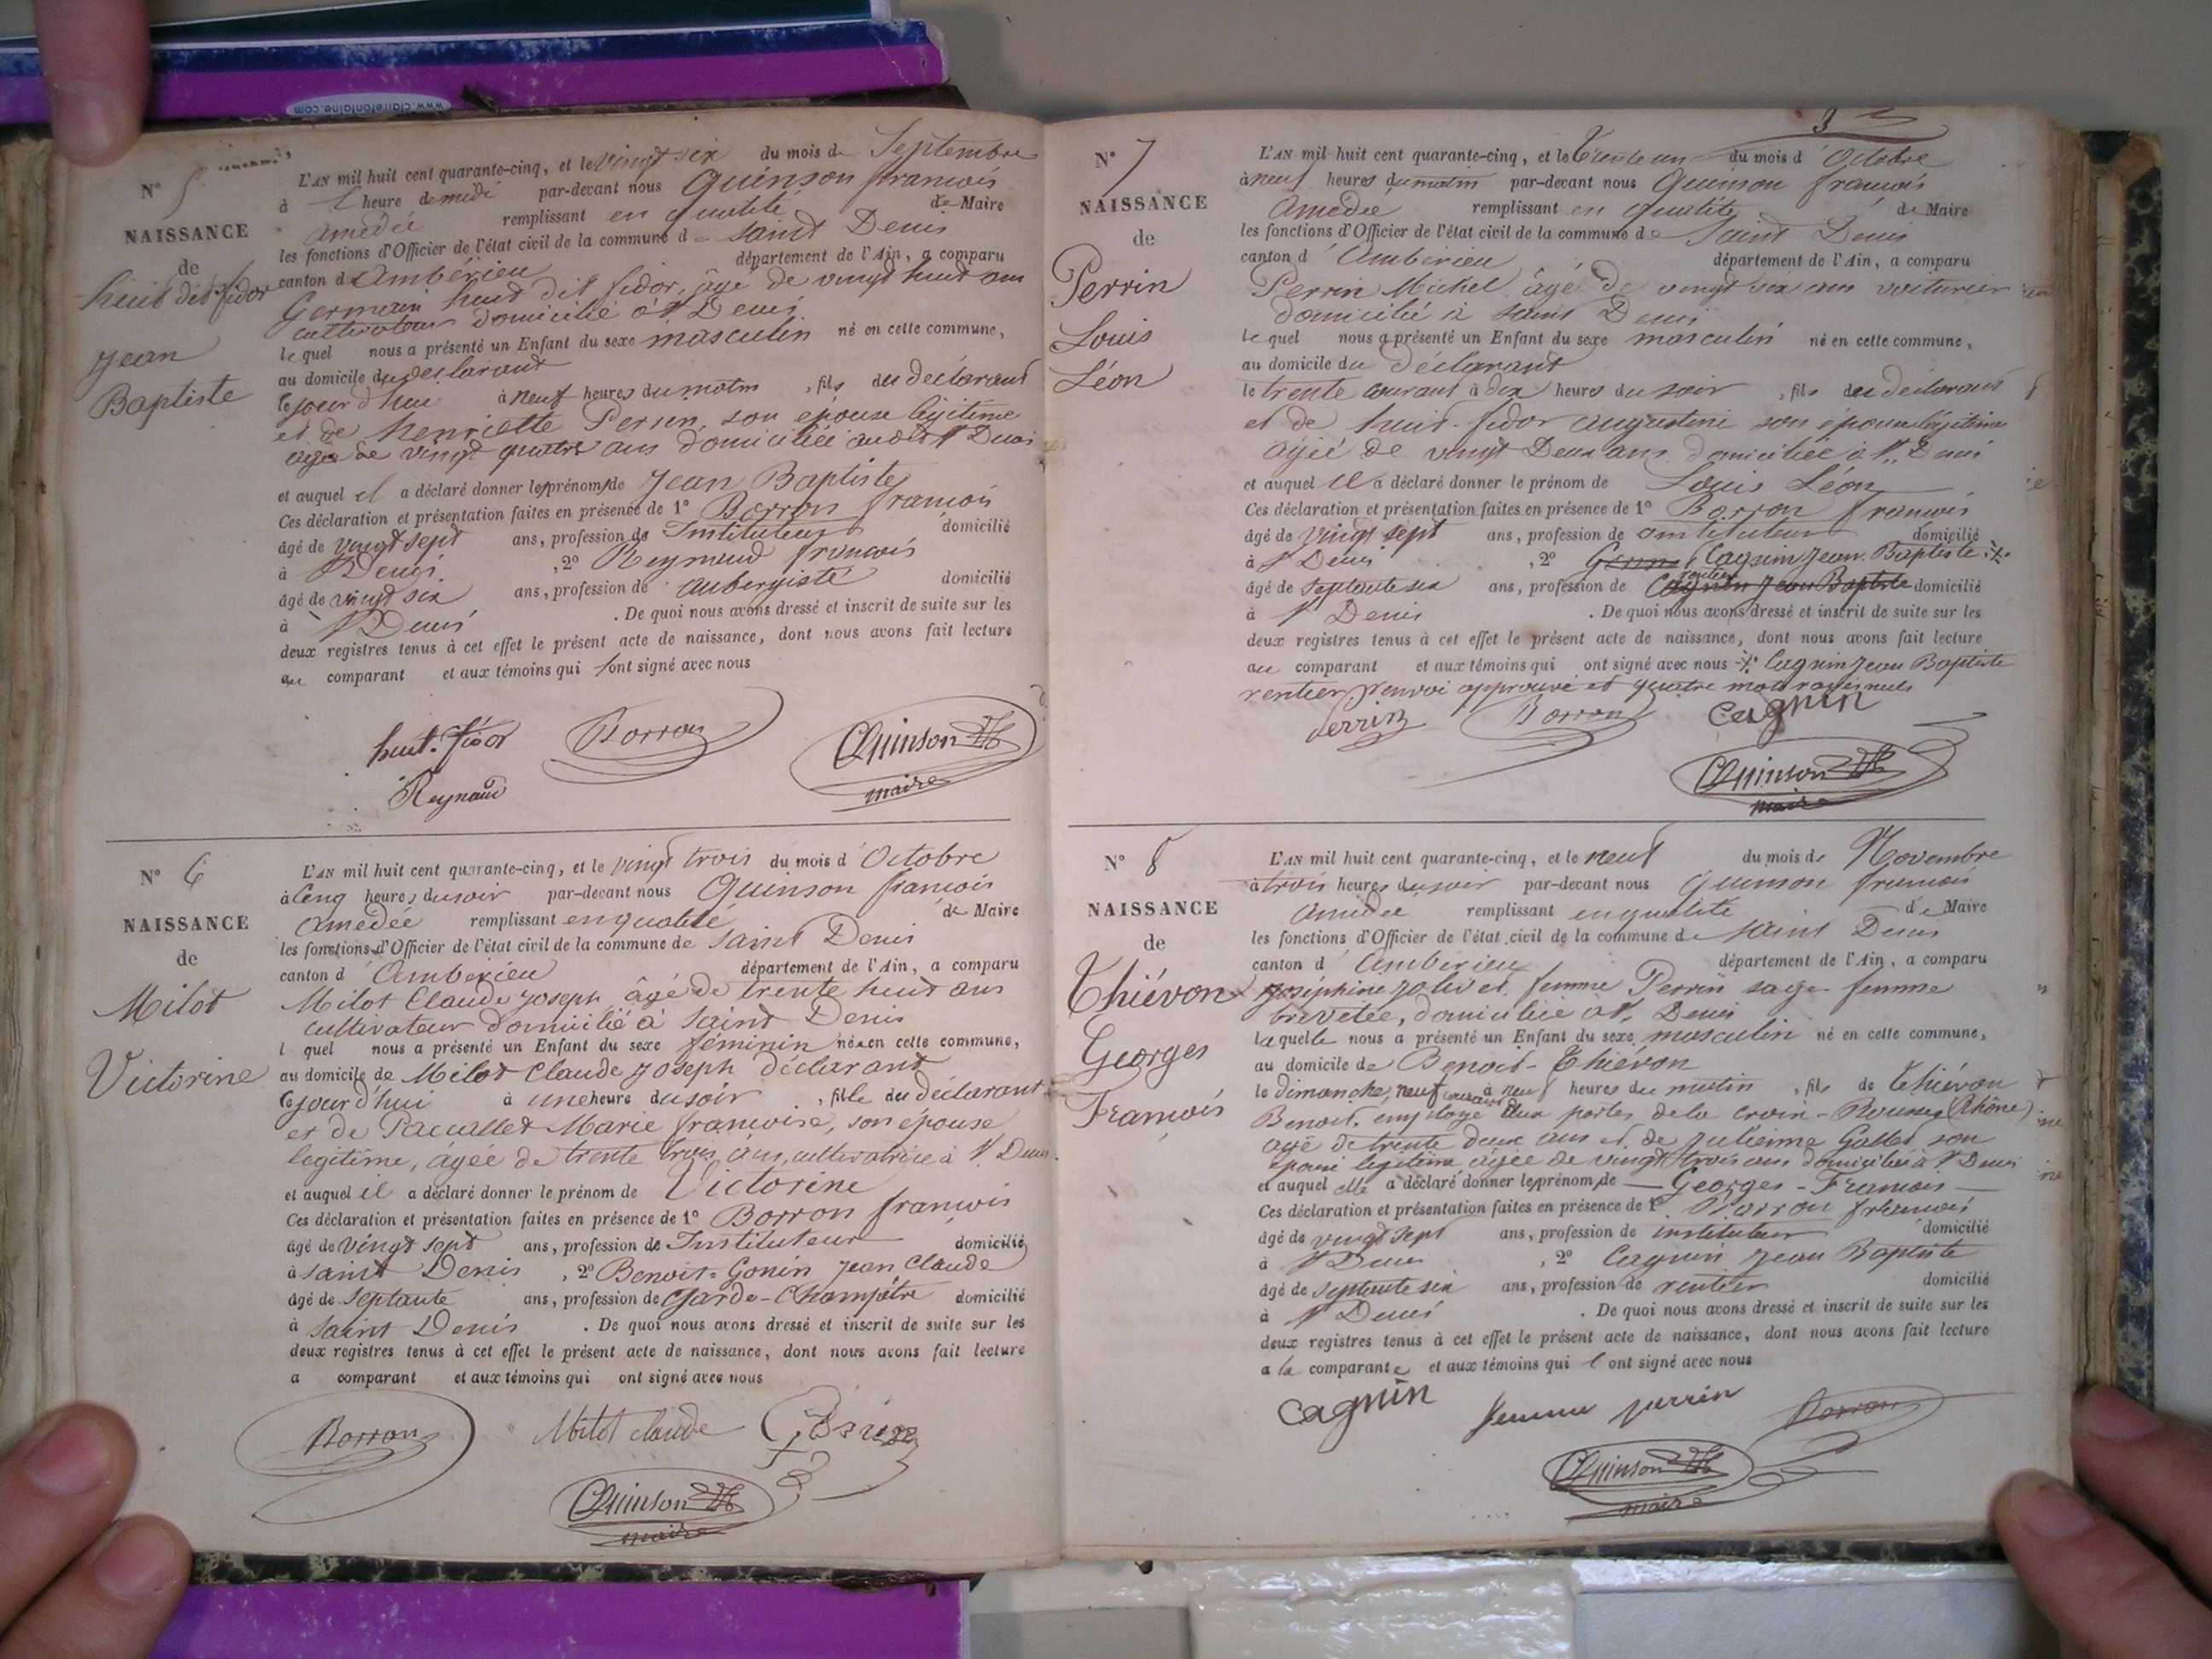 www.clairefontaine.com
N° 5
NAISSANCE
de
huit dit fidor
Jean
Baptiste
L'AN mil huit cent quarante-cinq, et le vingt six du mois de Septembre
à heure de midi par-devant nous Quinson françois
amédée remplissant en qualité de Maire
les fonctions d'Officier de l'état civil de la commune de saint Denis
canton d'Ambérieu département de l'Ain, a comparu
Germain huit dit fidor, âgé de vingt huit ans
cultivateur domicilié à St Denis
lequel nous a présenté un Enfant du sexe masculin né en cette commune,
au domicile du déclarant
le jour d'hui à neuf heures du matin, fils du déclarant
et de henriette Perrin, son épouse légitime
agée de vingt quatre ans domiciliée audit St Denis
et auquel il a déclaré donner les prénoms de Jean Baptiste
Ces déclaration et présentation faites en présence de 1° Borron françois
âgé de vingt sept ans, profession de Instituteur domicilié
à St Denis, 2° Reynaud françois
âgé de vingt six ans, profession de aubergiste domicilié
à St Denis. De quoi nous avons dressé et inscrit de suite sur les
deux registres tenus à cet effet le présent acte de naissance, dont nous avons fait lecture
au comparant et aux témoins qui l'ont signé avec nous
huit. fidor Borron Quinson
Reynaud maire
N° 6
NAISSANCE
de
Milot
Victorine
L'AN mil huit cent quarante-cinq, et le vingt trois du mois d'Octobre
à cinq heures du soir par-devant nous Quinson françois
Amédée remplissant en qualité de Maire
les fonctions d'Officier de l'état civil de la commune de saint Denis
canton d'Ambérieu département de l'Ain, a comparu
Milot Claude Joseph âgé de trente huit ans
cultivateur domicilié à Saint Denis
l quel nous a présenté un Enfant du sexe féminin née en cette commune,
au domicile de Milot Claude Joseph déclarant
le jour d'hui à une heure du soir, fille du déclarant
et de Marie françoise, son épouse
légitime, âgée de trente trois ans, cultivatrice à St Denis.
et auquel il a déclaré donner le prénom de Victorine
Ces déclaration et présentation faites en présence de 1° Borron françois
âgé de vingt sept ans, profession de Instituteur domicilié
à saint Denis, 2° Benoit-Gonin Jean Claude
âgé de septante ans, profession de Garde-Champêtre domicilié
à saint Denis. De quoi nous avons dressé et inscrit de suite sur les
deux registres tenus à cet effet le présent acte de naissance, dont nous avons fait lecture
a comparant et aux témoins qui ont signé avec nous
Borron Milot claude
Quinson
maire
3
N° 7
NAISSANCE
de
Perrin
Louis
Léon
L'AN mil huit cent quarante-cinq, et le trente un du mois d'Octobre
à neuf heures du matin par-devant nous Quinson françois
Amédée remplissant en qualité de Maire
les fonctions d'Officier de l'état civil de la commune de Saint Denis
canton d'Ambérieu département de l'Ain, a comparu
Perrin Michel âgé de vingt six ans voiturier
domicilié à saint Denis
lequel nous a présenté un Enfant du sexe masculin né en cette commune,
au domicile du déclarant
le trente courant à dix heures du soir, fils du déclarant
et de huit-fidor augustine son épouse légitime
âgée de vingt Deux ans domiciliée à St Denis
et auquel il a déclaré donner le prénom de Louis Léon
Ces déclaration et présentation faites en présence de 1° Borron françois
âgé de vingt sept ans, profession de instituteur domicilié
à St Denis, 2° Cagnin Jean Baptiste
âgé de septante six ans, profession de rentier Cagnin Jean Baptiste domicilié
à St Denis. De quoi nous avons dressé et inscrit de suite sur les
deux registres tenus à cet effet le présent acte de naissance, dont nous avons fait lecture
au comparant et aux témoins qui ont signé avec nous Cagnin Jean Baptiste
rentier renvoi approuvé et quatre mots rayés nuls
Perrin Borron Cagnin
Quinson
maire
N° 8
NAISSANCE
de
Thiévon
Georges
François
L'AN mil huit cent quarante-cinq, et le neuf du mois de Novembre
à trois heures du soir par-devant nous Quinson françois
Amédée remplissant en qualité de Maire
les fonctions d'Officier de l'état civil de la commune de saint Denis
canton d'Ambérieu département de l'Ain, a comparu
Joséphine Jolivet, femme Perrin sage-femme
brévetée, domiciliée à St Denis
laquelle nous a présenté un Enfant du sexe masculin né en cette commune,
au domicile de Benoit-Thiévon
le dimanche, neuf courant à neuf heures du matin, fils de Thiévon
Benoit, employé aux portes de la croix-Rousse (Rhône)
agé de trente deux ans et de Julienne Gallet son
épouse légitime âgée de vingt trois ans domiciliés à St Denis
et auquel elle a déclaré donner les prénoms de Georges-François
Ces déclaration et présentation faites en présence de 1° Borron françois
âgé de vingt sept ans, profession de instituteur domicilié
à St Denis, 2° Cagnin Jean Baptiste
âgé de septante six ans, profession de rentier domicilié
à St Denis. De quoi nous avons dressé et inscrit de suite sur les
deux registres tenus à cet effet le présent acte de naissance, dont nous avons fait lecture
a la comparante et aux témoins qui l'ont signé avec nous
Cagnin femme perrin Borron
Quinson
maire